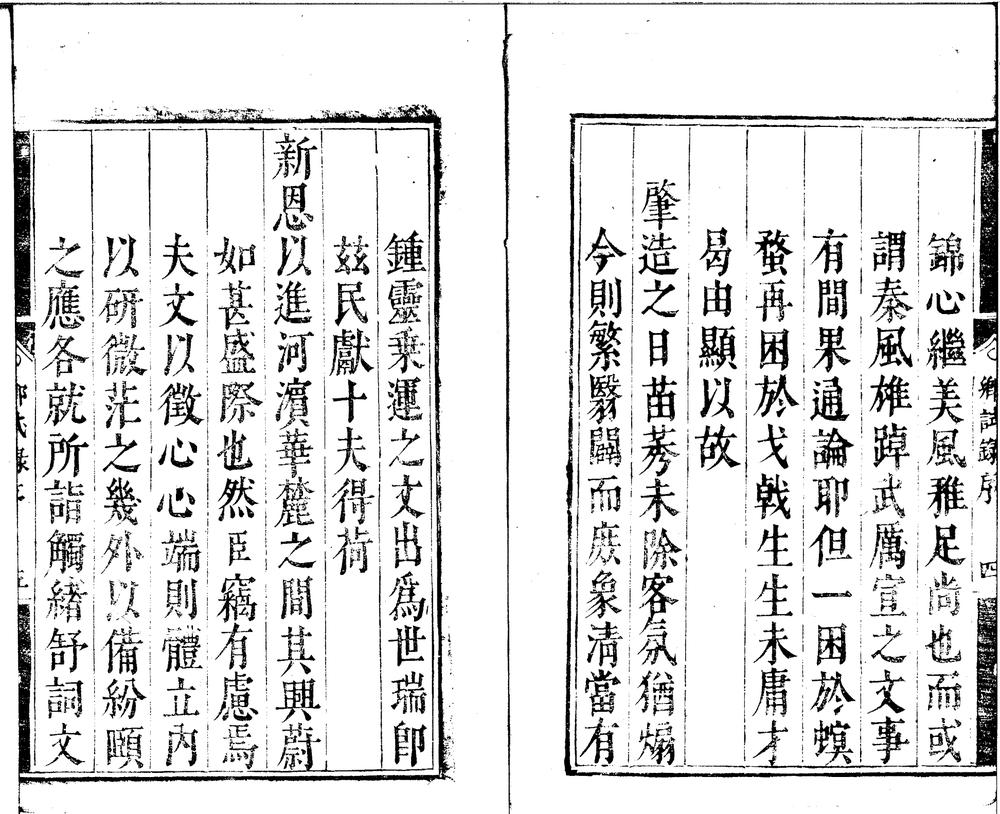 錦心繼美風雅足尚也而或
謂秦風雄踔武厲宣之文事
有間果通論耶但一困於螟
蝥再困於戈戟生生未庸才
曷由顯以故
肇造之日苗莠未除客氛猶煽
今則繁翳闢而庶象清當有
鄉試錄序
四
鍾靈乗運之文出為世瑞卽
茲民獻十夫得荷
新恩以進河濵華麓之間其興蔚
如甚盛際也然臣竊有慮焉
夫文以徵心心端則體立内
以研微茫之幾外以備紛頤
之應各就所詣觸緒舒詞文